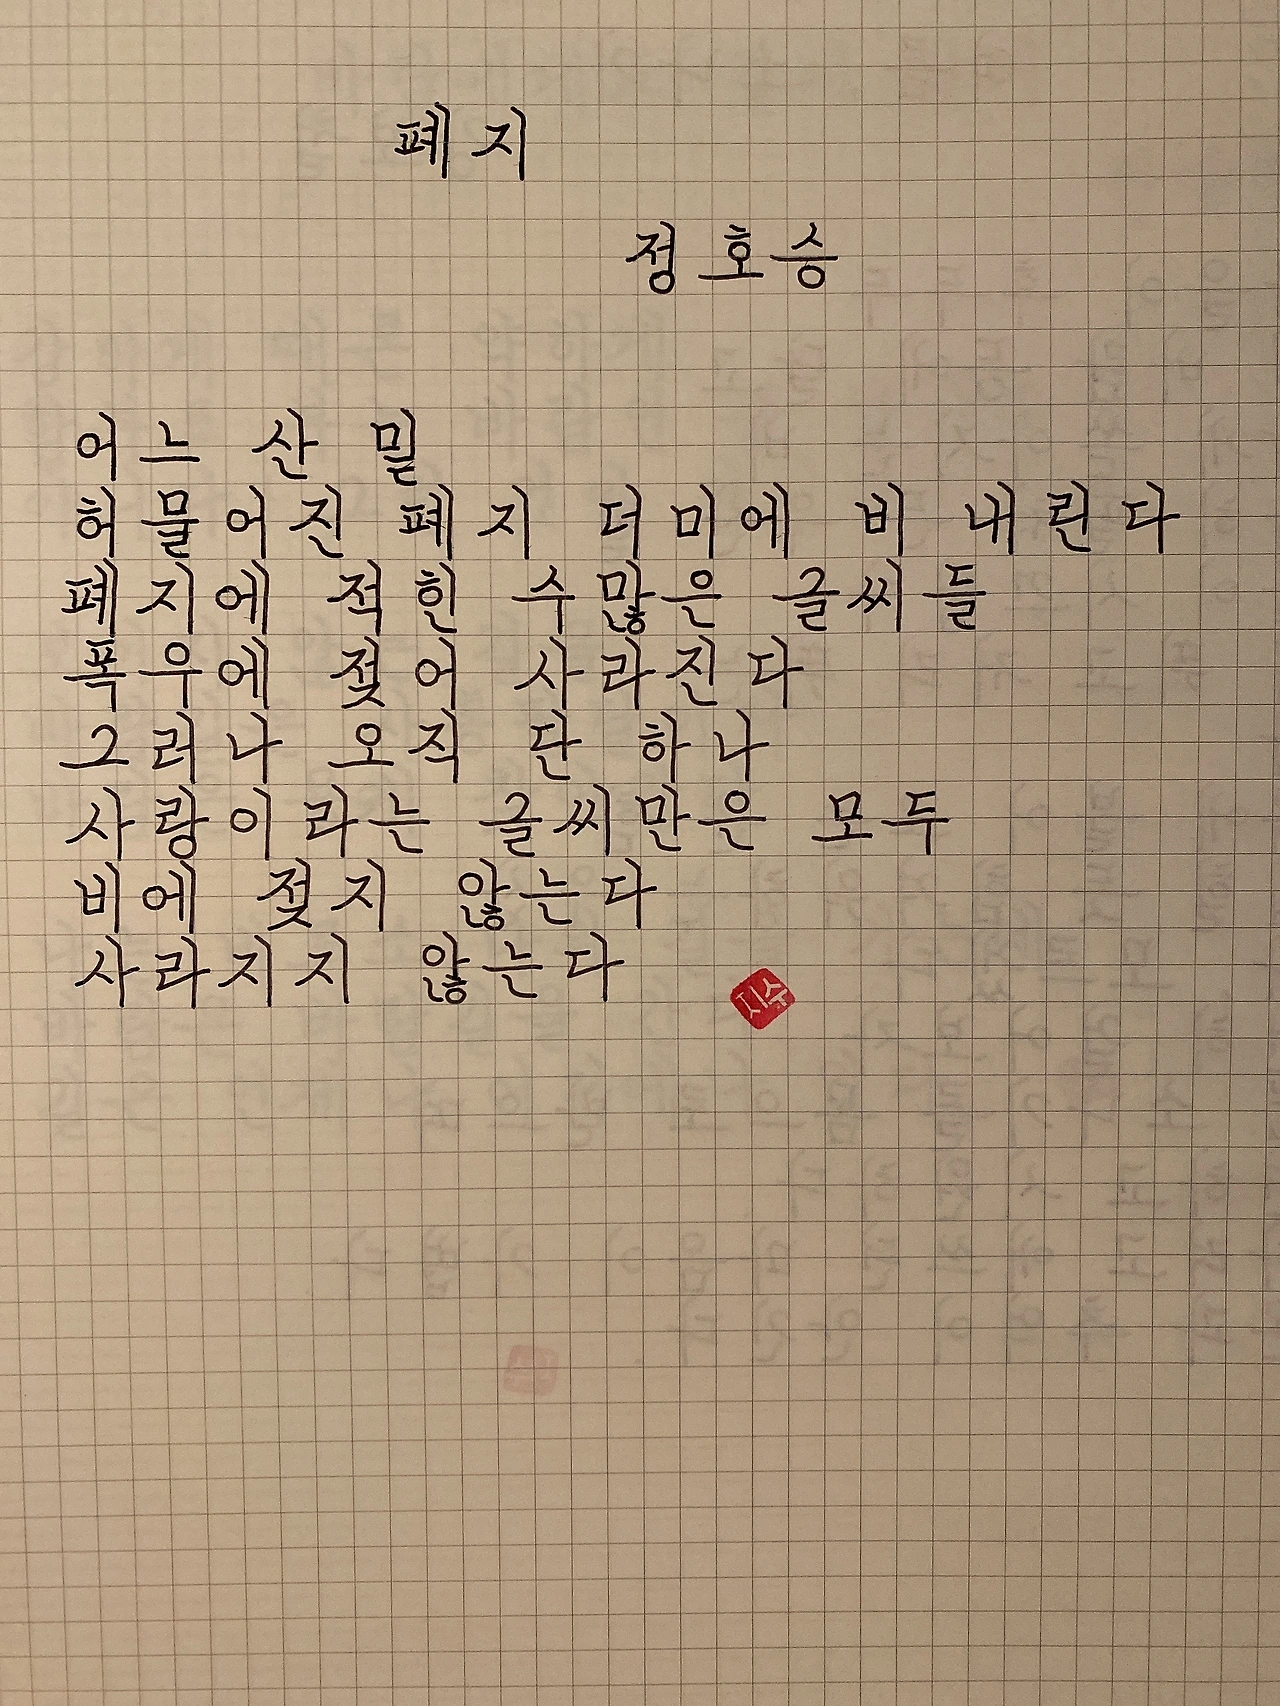 폐지
정호승
어느 산 밑
허물어진 폐지 더미에 비 내린다
폐지에 적힌 수많은 글씨들
폭우에 젖어 사라진다
그러나 오직 단 하나
사랑이라는 글씨만은 모두
비에 젖지 않는다
사라지지 않는다
지수